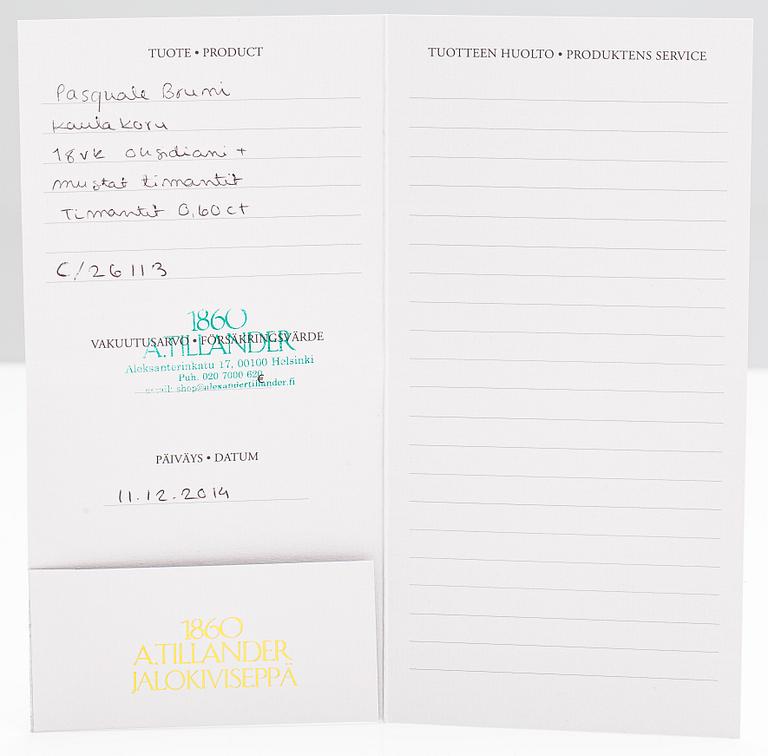 TUOTE • PRODUCT
Pasquale Bruni
Kaulakoru
18vk obsidiani +
mustat timantit
Timantit 0,60 ct
C/26113
1860
VAKUUTUSARVO • FÖRSÄKRINGSVÄRDE
A.TILLANDER
Aleksanterinkatu 17, 00100 Helsinki
Puh. 020 7000 620
€
email: shop@alexandertillander.fi
PÄIVÄYS • DATUM
11.12.2014
1860
A.TILLANDER
JALOKIVISEPPÄ
TUOTTEEN HUOLTO • PRODUKTENS SERVICE